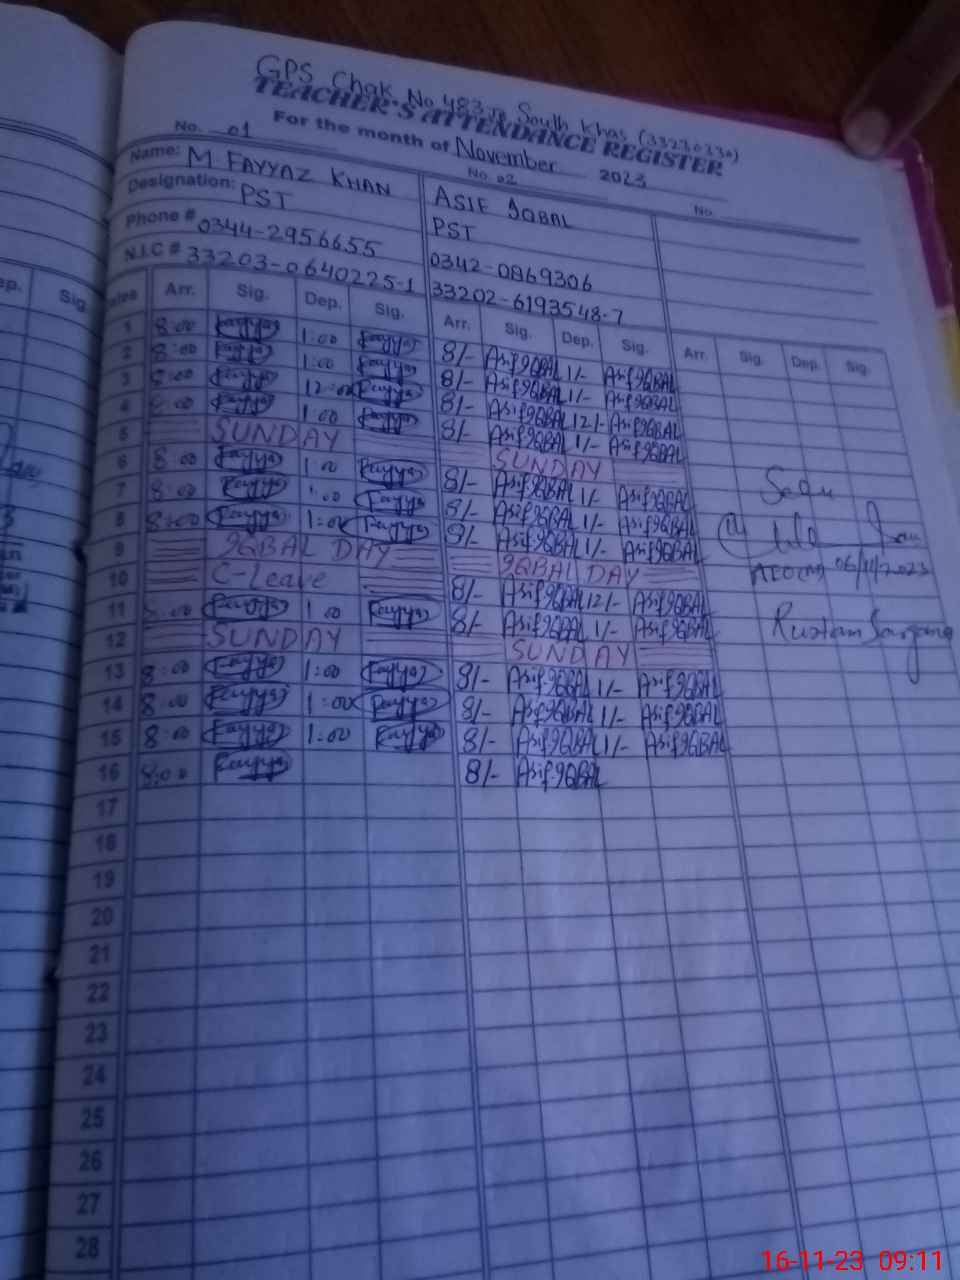 GPS Chak No 483 JB South Khas (33230330)
TEACHER'S ATTENDANCE REGISTER
For the month of November 2023
No. 01 No. 02 No.
Name: M FAYYAZ KHAN ASIF IQBAL
Designation: PST PST
Phone # 0344-2956655 0342-0869306
N.I.C # 33203-0640225-1 33202-6193548-7
Arr. Sig. Dep. Sig. Arr. Sig. Dep. Sig. Arr. Sig. Dep. Sig.
1 8:00 Fayyaz 1:00 Fayyaz 8/- Asif IQBAL 1/- Asif IQBAL
2 8:00 Fayyaz 1:00 Fayyaz 8/- Asif IQBAL 1/- Asif IQBAL
3 8:00 Fayyaz 12:00 Fayyaz 8/- Asif IQBAL 12/- Asif IQBAL
4 8:00 Fayyaz 1:00 Fayyaz 8/- Asif IQBAL 1/- Asif IQBAL
5 SUNDAY SUNDAY
6 8:00 Fayyaz 1:00 Fayyaz 8/- Asif IQBAL 1/- Asif IQBAL
7 8:00 Fayyaz 1:00 Fayyaz 8/- Asif IQBAL 1/- Asif IQBAL
8 8:00 Fayyaz 1:00 Fayyaz 8/- Asif IQBAL 1/- Asif IQBAL
9 IQBAL DAY IQBAL DAY
06/11/2023
10 C-Leave 8/- Asif IQBAL 12/- Asif IQBAL
11 8:00 Fayyaz 1:00 Fayyaz 8/- Asif IQBAL 1/- Asif IQBAL
Rustam
12 SUNDAY SUNDAY
13 8:00 Fayyaz 1:00 Fayyaz 8/- Asif IQBAL 1/- Asif IQBAL
14 8:00 Fayyaz 1:00 Fayyaz 8/- Asif IQBAL 1/- Asif IQBAL
15 8:00 Fayyaz 1:00 Fayyaz 8/- Asif IQBAL 1/- Asif IQBAL
16 8:00 Fayyaz 8/- Asif IQBAL
17
18
19
20
21
22
23
24
25
26
27
28
16-11-23 09:11